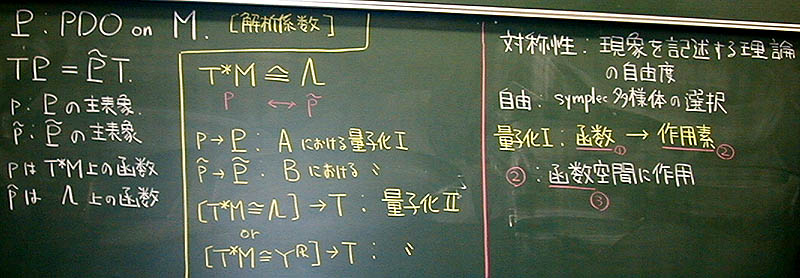 P : PDO on M. [解析係数]
TP = P̃T.
p : Pの主表象.
p̃ : P̃の主表象
pはT*M上の函数
p̃は Λ 上の函数
T*M ≅ Λ
p ↔ p̃
p → P : Aにおける量子化I
p̃ → P̃ : Bにおける 〃
[T*M≅Λ] → T : 量子化II
or
[T*M≅Yᴿ] → T : 〃
対称性 : 現象を記述する理論
の自由度
自由 : symplec多様体の選択
量子化I : 函数 → 作用素
① ②
② : 函数空間に作用
③